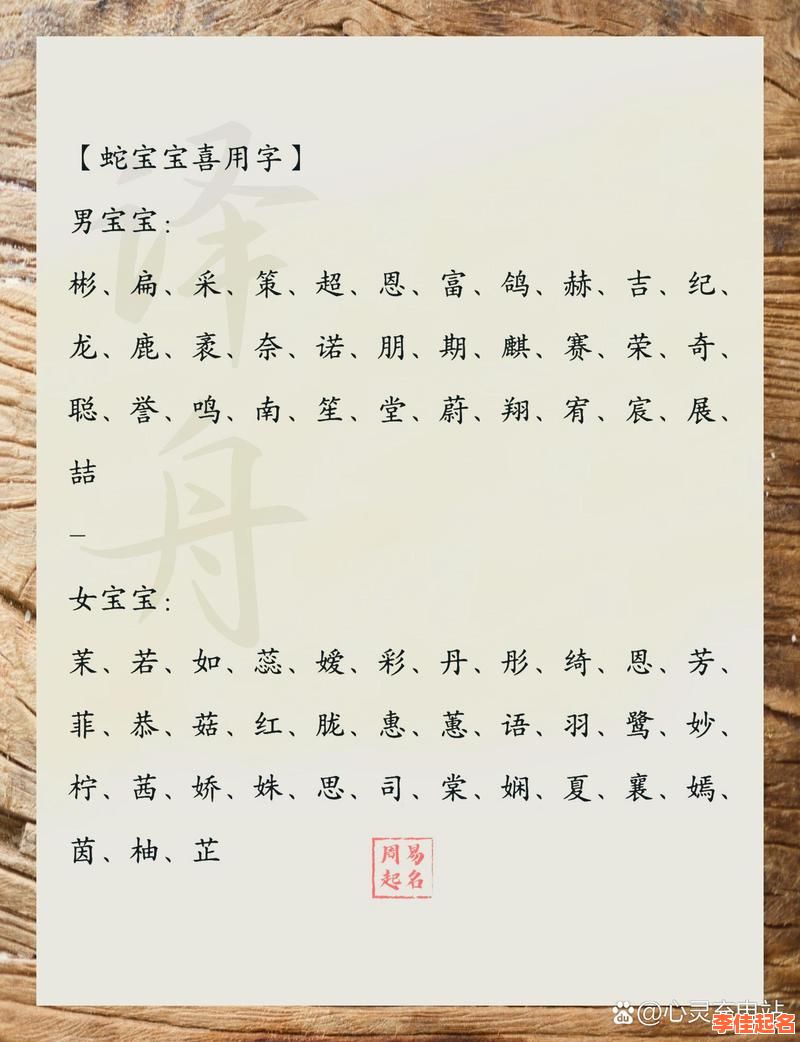 【蛇宝宝喜用字】
男宝宝：
彬、扁、采、策、超、恩、富、鸽、赫、吉、纪、
龙、鹿、袤、奈、诺、朋、期、麒、赛、荣、奇、
聪、誉、鸣、南、笙、堂、蔚、翔、宥、宸、展、
喆
—
女宝宝：
茉、若、如、蕊、嫒、彩、丹、彤、绮、恩、芳、
菲、恭、菇、红、胧、惠、蕙、语、羽、鹭、妙、
柠、茜、娇、姝、思、司、棠、娴、夏、襄、嫣、
茵、柚、芷
泽舟
周易
起名
du @心灵充电站
李佳起名